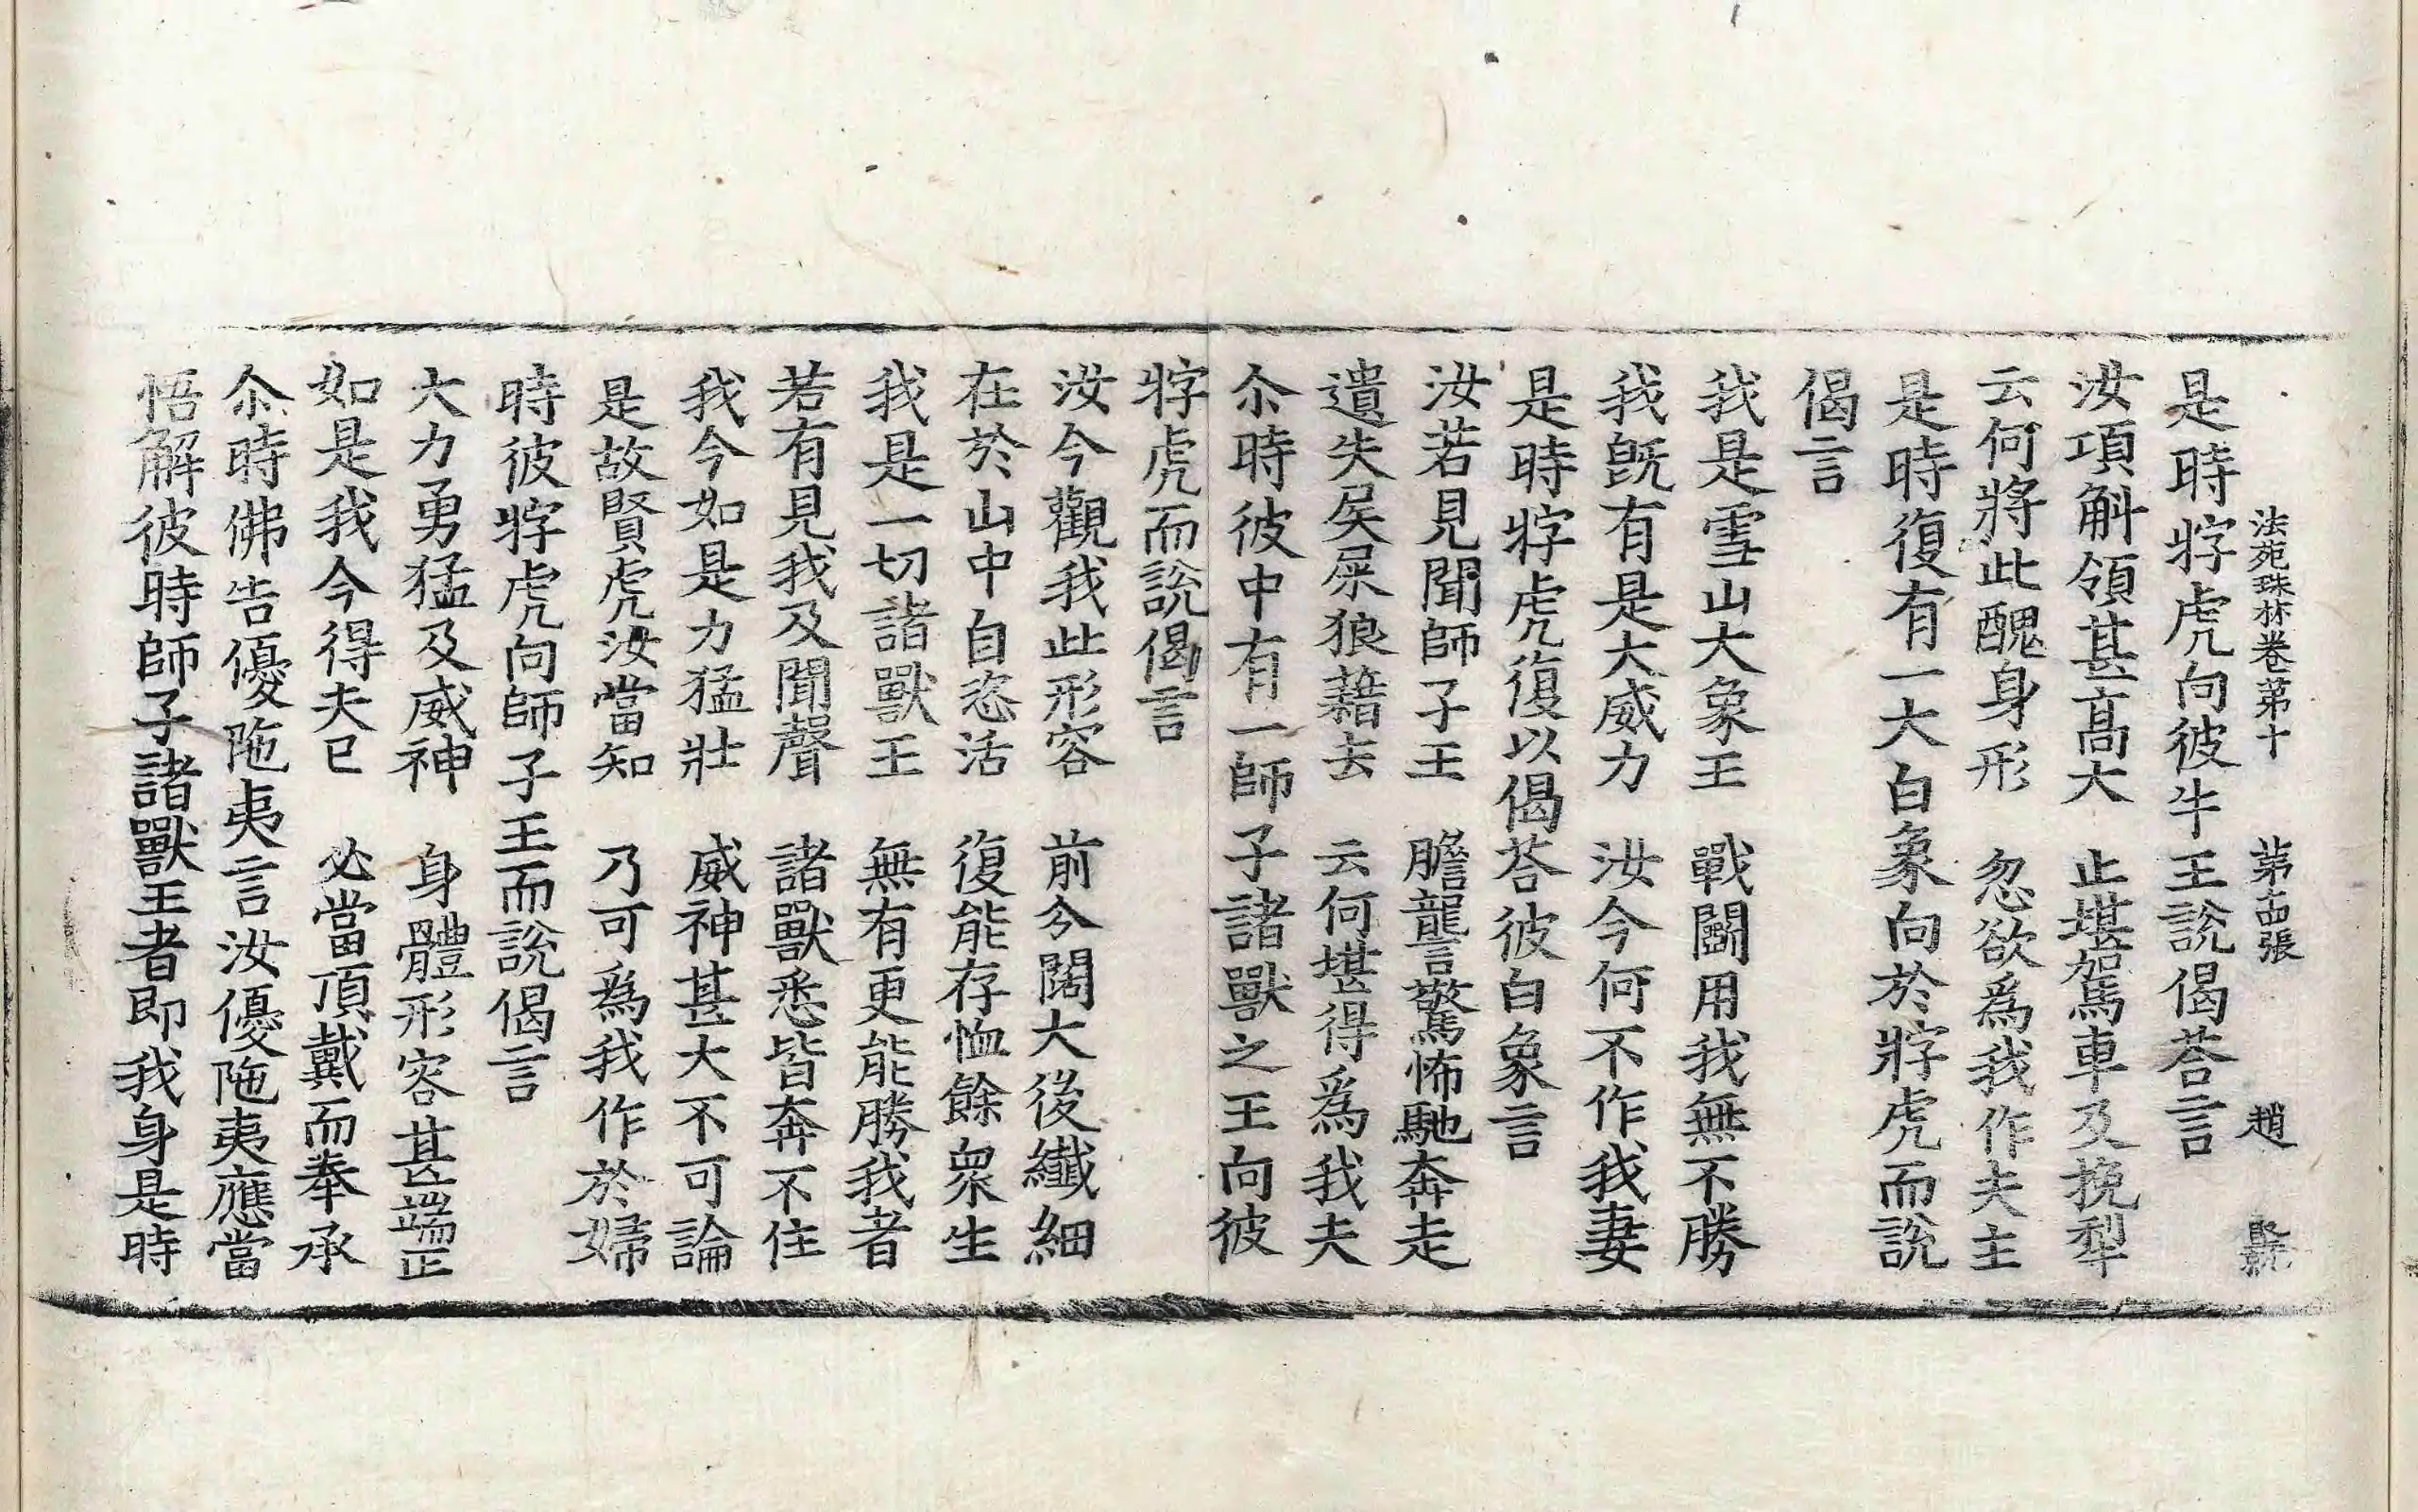 法苑珠林卷第十　第古張　趙
是時牸虎向彼牛王說偈荅言
汝項斛領甚髙大　止堪駕車及挽犁
云何將此醜身形　忽欲爲我作夫主
是時復有一大白象向於牸虎而說
偈言
我是雪山大象王　戰鬭用我無不勝
我旣有是大威力　汝今何不作我妻
是時牸虎復以偈荅彼白象言
汝若見聞師子王　膽讋驚怖馳奔走
遺失屎尿狼藉去　云何堪得爲我夫
尒時彼中有一師子諸獸之王向彼
牸虎而說偈言
汝今觀我此形容　前分闊大後纖細
在於山中自恣活　復能存恤餘衆生
我是一切諸獸王　無有更能勝我者
若有見我及聞聲　諸獸悉皆奔不住
我今如是力猛壯　威神甚大不可論
是故賢虎汝當知　乃可爲我作於婦
時彼牸虎向師子王而說偈言
大力勇猛及威神　身體形容甚端正
如是我今得夫已　必當頂戴而奉承
尒時佛告優陁夷言汝優陁夷應當
悟解彼時師子諸獸王者即我身是時